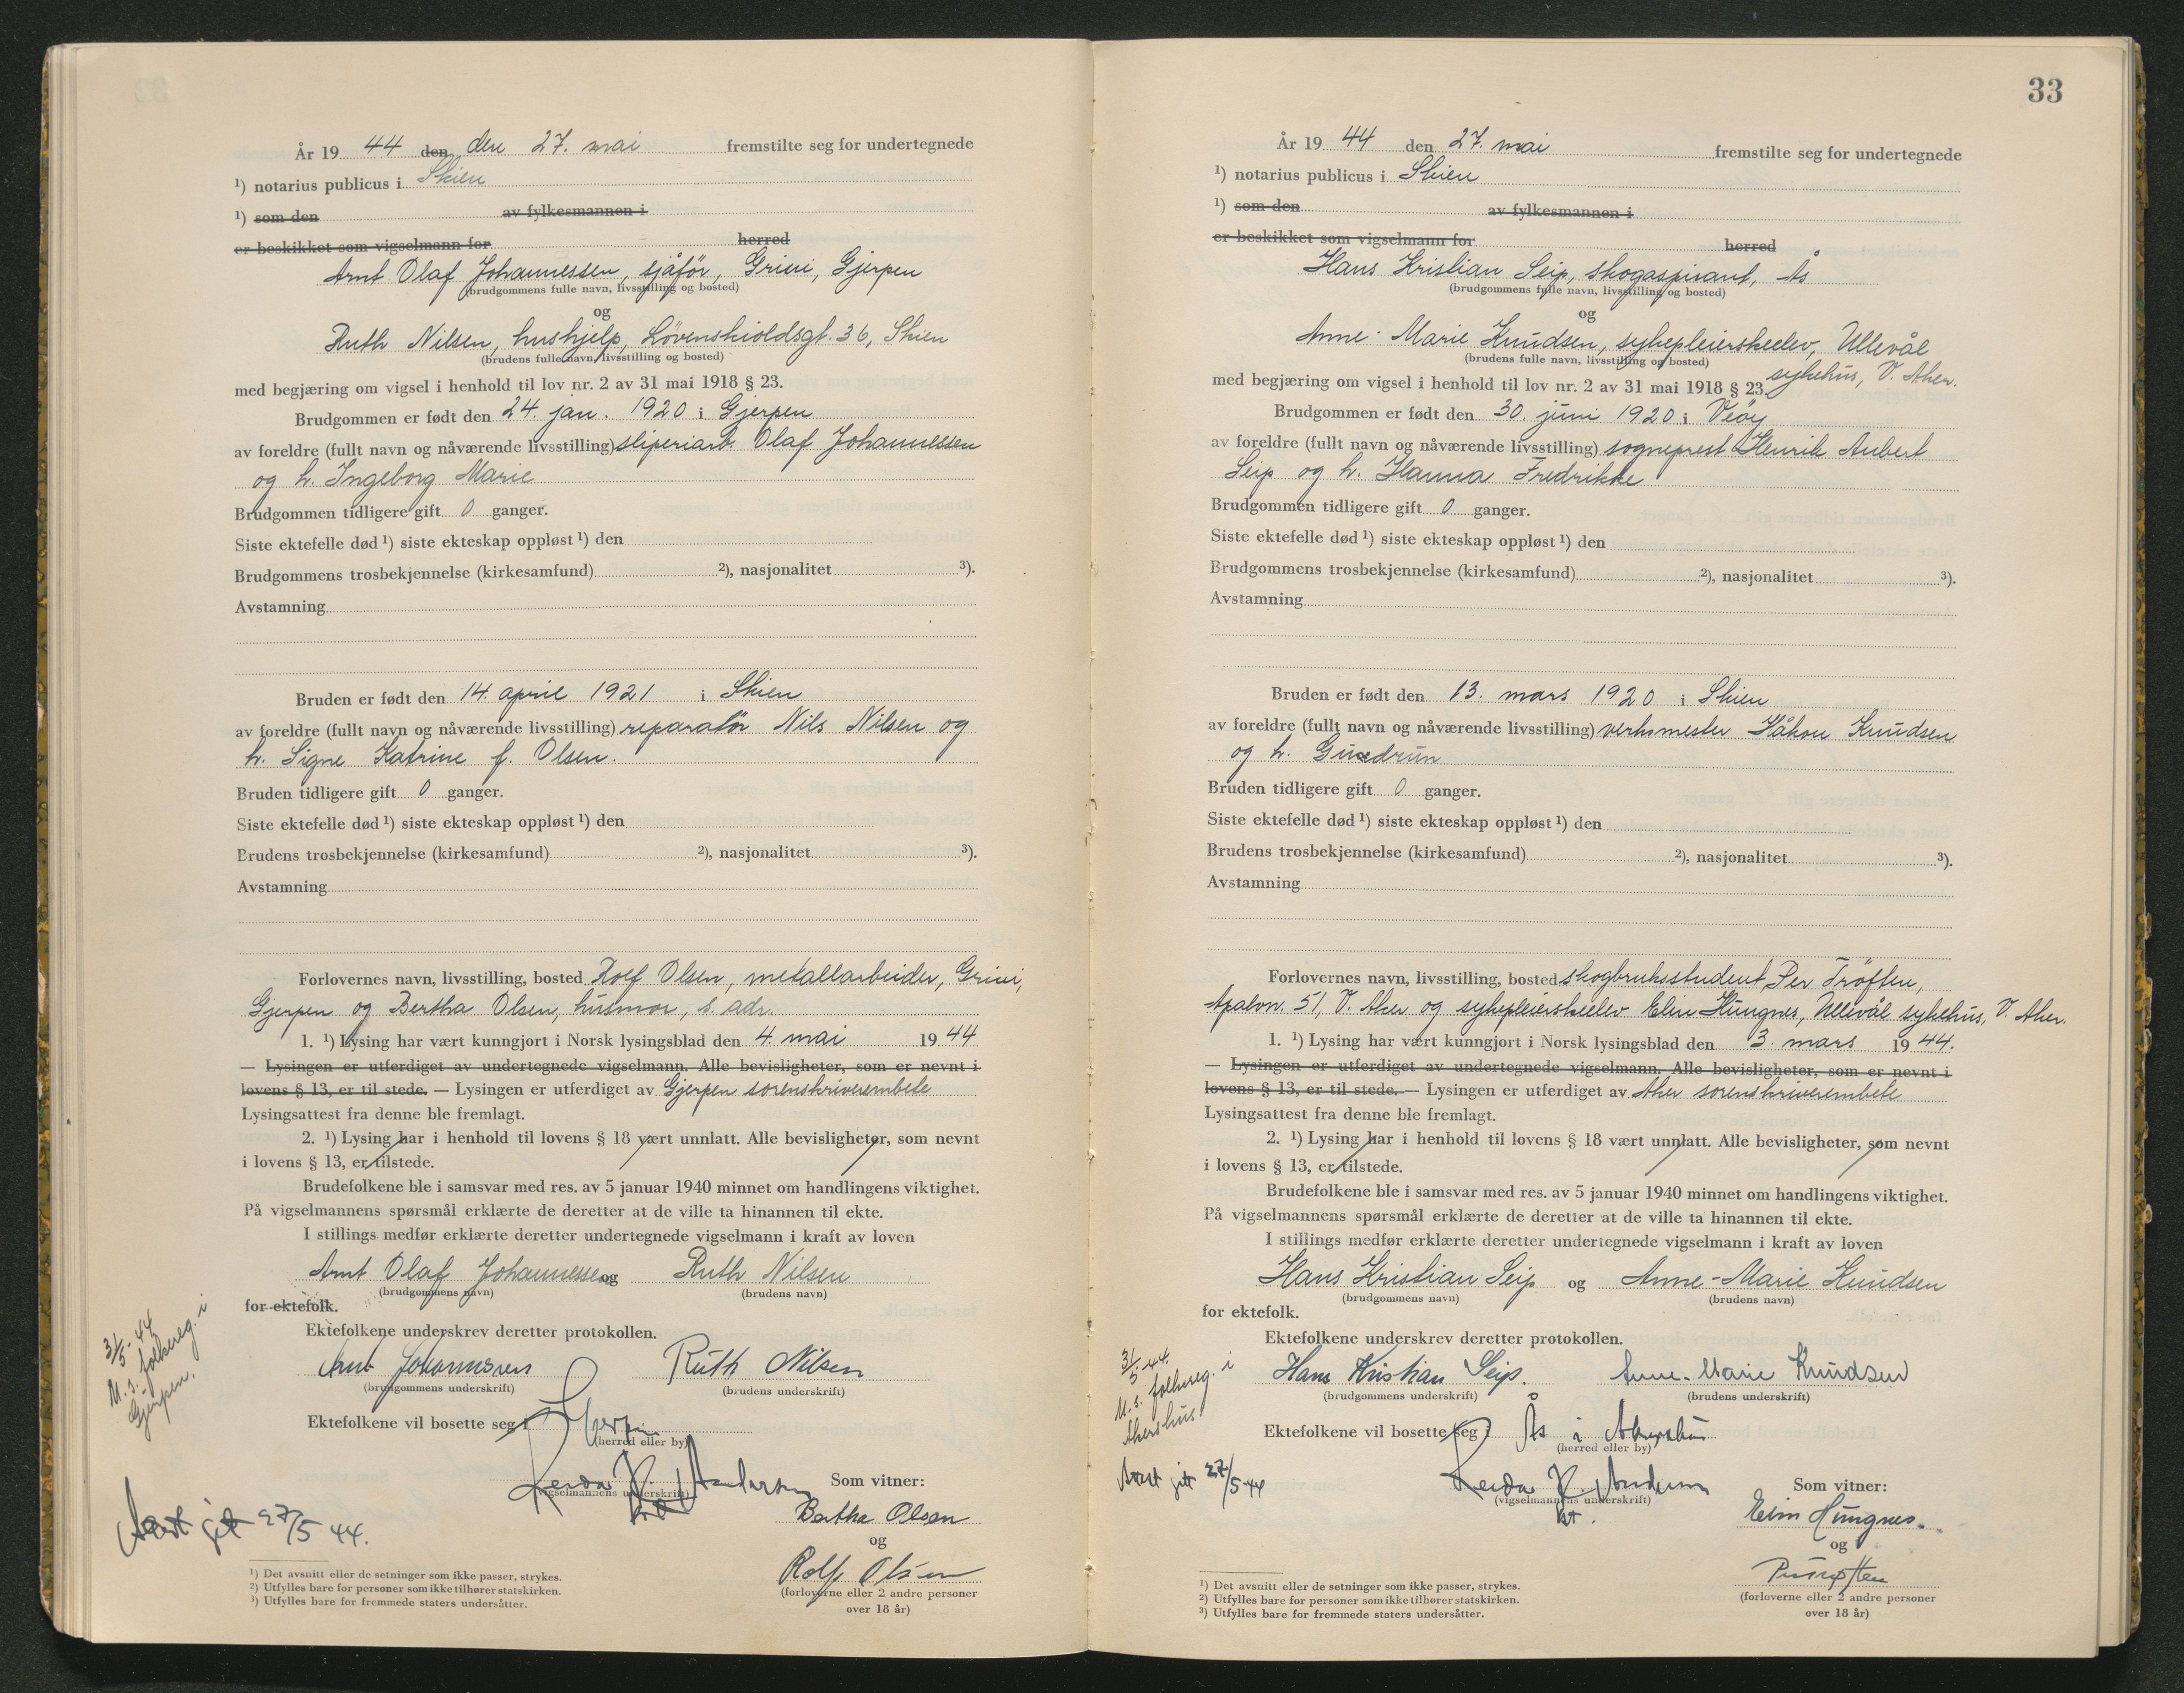 År 19 44 den den 27. mai fremstilte seg for undertegnede
¹) notarius publicus i Skien
¹) som den av fylkesmannen i
er beskikket som vigselmann for herred
Arnt Olaf Johannessen, sjåfør, Grini, Gjerpen
(brudgommens fulle navn, livsstilling og bosted)
og
Ruth Nilsen, hushjelp, Løvenskioldsgt. 36, Skien
(brudens fulle navn, livsstilling og bosted)
med begjæring om vigsel i henhold til lov nr. 2 av 31 mai 1918 § 23.
Brudgommen er født den 24. jan. 1920 i Gjerpen
av foreldre (fullt navn og nåværende livsstilling) sliperiarb. Olaf Johannessen
og h. Ingeborg Marie
Brudgommen tidligere gift 0 ganger.
Siste ektefelle død ¹) siste ekteskap oppløst ¹) den
Brudgommens trosbekjennelse (kirkesamfund) ²), nasjonalitet ³).
Avstamning
Bruden er født den 14. april 1921 i Skien
av foreldre (fullt navn og nåværende livsstilling) reparatør Nils Nilsen og
h. Signe Katrine f. Olsen.
Bruden tidligere gift 0 ganger.
Siste ektefelle død ¹) siste ekteskap oppløst ¹) den
Brudens trosbekjennelse (kirkesamfund) ²), nasjonalitet ³).
Avstamning
Forlovernes navn, livsstilling, bosted Rolf Olsen, metallarbeider, Grini,
Gjerpen og Bertha Olsen, husmor, s. adr.
1. ¹) Lysing har vært kunngjort i Norsk lysingsblad den 4. mai 19 44
— Lysingen er utferdiget av undertegnede vigselmann. Alle bevisligheter, som er nevnt i
lovens § 13, er til stede. — Lysingen er utferdiget av Gjerpen sorenskriverembete
Lysingsattest fra denne ble fremlagt.
2. ¹) Lysing har i henhold til lovens § 18 vært unnlatt. Alle bevisligheter, som nevnt
i lovens § 13, er tilstede.
Brudefolkene ble i samsvar med res. av 5 januar 1940 minnet om handlingens viktighet.
På vigselmannens spørsmål erklærte de deretter at de ville ta hinannen til ekte.
I stillings medfør erklærte deretter undertegnede vigselmann i kraft av loven
Arnt Olaf Johannessen og Ruth Nilsen
(brudgommens navn) (brudens navn)
for ektefolk.
Ektefolkene underskrev deretter protokollen.
Arnt Johannessen Ruth Nilsen
(brudgommens underskrift) (brudens underskrift)
Ektefolkene vil bosette seg i Gjerpen
(herred eller by)
31/5-44
M. s. folkereg. i
Gjerpen.
Som vitner:
(vigselmannens underskrift)
Bertha Olsen
og
Rolf Olsen
(forloverne eller 2 andre personer
over 18 år)
Attest gitt 27/5 44.
¹) Det avsnitt eller de setninger som ikke passer, strykes.
²) Utfylles bare for personer som ikke tilhører statskirken.
³) Utfylles bare for fremmede staters undersåtter.
33
År 19 44 den 27. mai fremstilte seg for undertegnede
¹) notarius publicus i Skien
¹) som den av fylkesmannen i
er beskikket som vigselmann for herred
Hans Kristian Seip, skogaspirant, Ås
(brudgommens fulle navn, livsstilling og bosted)
og
Anne-Marie Knudsen, sykepleierskeelev, Ullevål
(brudens fulle navn, livsstilling og bosted)
sykehus, V. Aker.
med begjæring om vigsel i henhold til lov nr. 2 av 31 mai 1918 § 23.
Brudgommen er født den 30. juni 1920 i Veøy
av foreldre (fullt navn og nåværende livsstilling) sogneprest Henrik Aubert
Seip og h. Hanna Fredrikke
Brudgommen tidligere gift 0 ganger.
Siste ektefelle død ¹) siste ekteskap oppløst ¹) den
Brudgommens trosbekjennelse (kirkesamfund) ²), nasjonalitet ³).
Avstamning
Bruden er født den 13. mars 1920 i Skien
av foreldre (fullt navn og nåværende livsstilling) verksmester Håkon Knudsen
og h. Gudrun
Bruden tidligere gift 0 ganger.
Siste ektefelle død ¹) siste ekteskap oppløst ¹) den
Brudens trosbekjennelse (kirkesamfund) ²), nasjonalitet ³).
Avstamning
Forlovernes navn, livsstilling, bosted skogbruksstudent Per Trøften,
Apalvn. 51, V. Aker og sykepleierskeelev Elin Hungnes, Ullevål sykehus, V. Aker.
1. ¹) Lysing har vært kunngjort i Norsk lysingsblad den 3. mars 19 44.
— Lysingen er utferdiget av undertegnede vigselmann. Alle bevisligheter, som er nevnt i
lovens § 13, er til stede. — Lysingen er utferdiget av Aker sorenskriverembete
Lysingsattest fra denne ble fremlagt.
2. ¹) Lysing har i henhold til lovens § 18 vært unnlatt. Alle bevisligheter, som nevnt
i lovens § 13, er tilstede.
Brudefolkene ble i samsvar med res. av 5 januar 1940 minnet om handlingens viktighet.
På vigselmannens spørsmål erklærte de deretter at de ville ta hinannen til ekte.
I stillings medfør erklærte deretter undertegnede vigselmann i kraft av loven
Hans Kristian Seip og Anne-Marie Knudsen
(brudgommens navn) (brudens navn)
for ektefolk.
Ektefolkene underskrev deretter protokollen.
Hans Kristian Seip. Anne-Marie Knudsen
(brudgommens underskrift) (brudens underskrift)
Ektefolkene vil bosette seg i Ås i Akershus
(herred eller by)
31/5-44.
M. s. folkereg. i
Akershus
Attest gitt 27/5 44
Som vitner:
(vigselmannens underskrift)
Elin Hungnes.
og
Per Trøften
(forloverne eller 2 andre personer
over 18 år)
¹) Det avsnitt eller de setninger som ikke passer, strykes.
²) Utfylles bare for personer som ikke tilhører statskirken.
³) Utfylles bare for fremmede staters undersåtter.